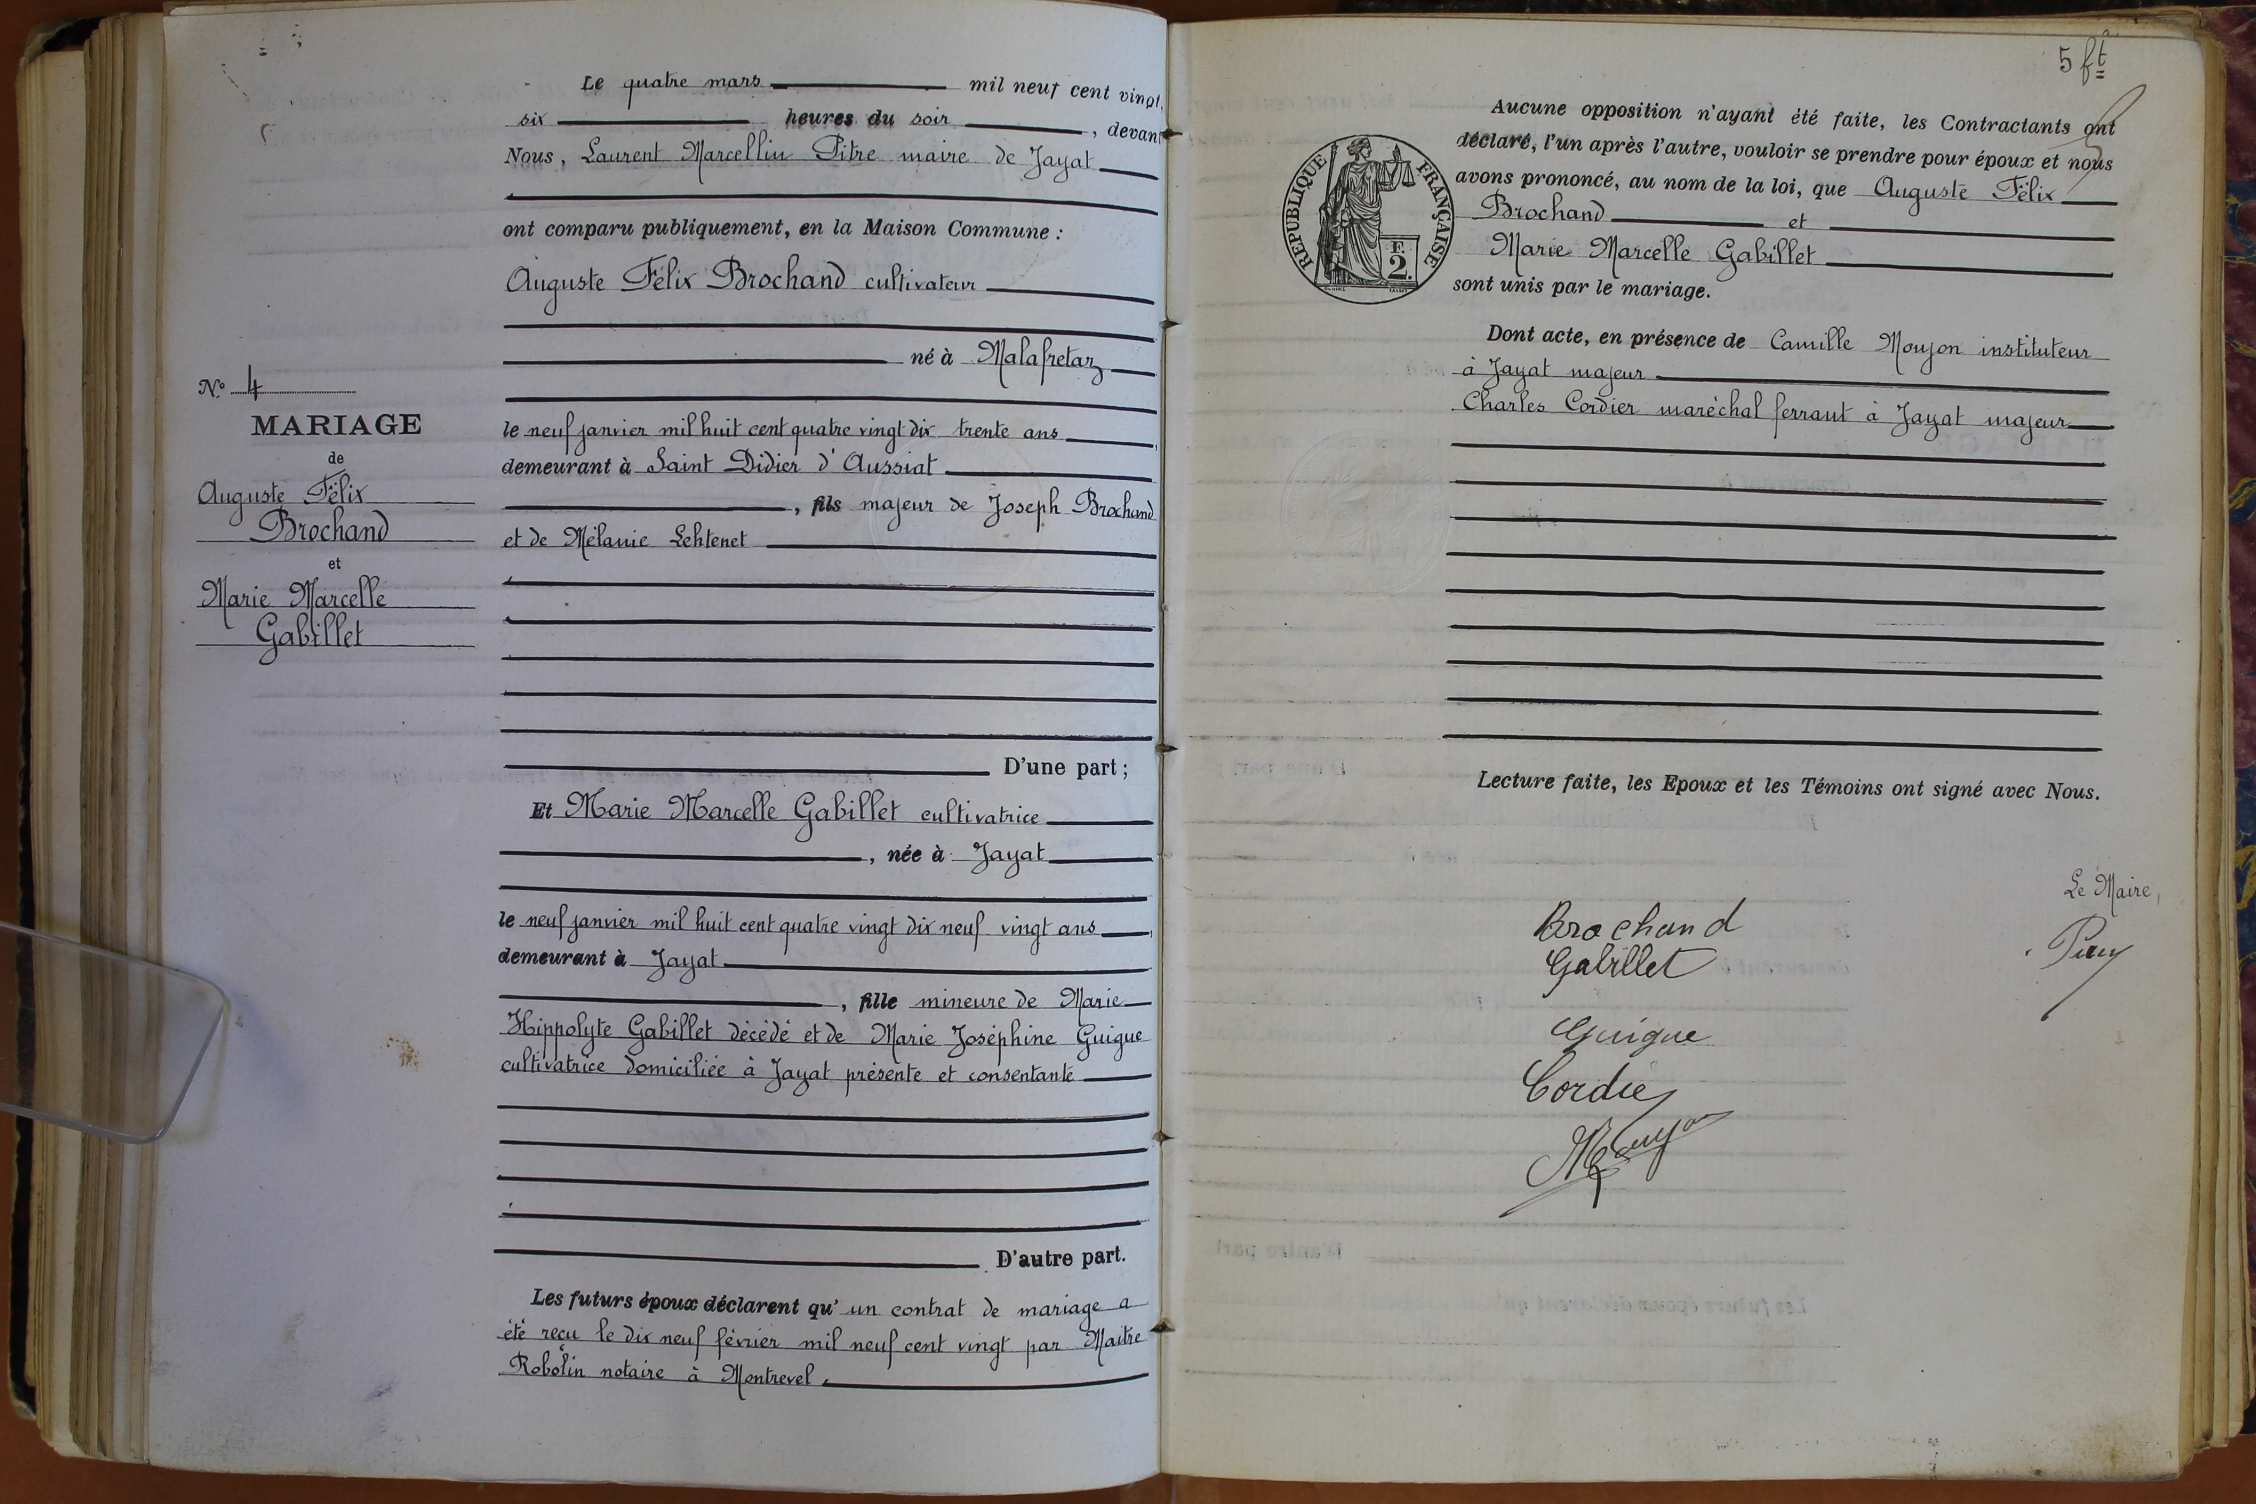 Le quatre mars mil neuf cent vingt,
six heures du soir, devant
Nous, Laurent Marcellin Pitre maire de Jayat
ont comparu publiquement, en la Maison Commune :
Auguste Félix Brochand cultivateur
né à Malafretaz
le neuf janvier mil huit cent quatre vingt dix trente ans
demeurant à Saint Didier d'Aussiat
, fils majeur de Joseph Brochand
et de Mélanie Lehtenet
D'une part ;
Et Marie Marcelle Gabillet cultivatrice
, née à Jayat
le neuf janvier mil huit cent quatre vingt dix neuf vingt ans
demeurant à Jayat
, fille mineure de Marie
Hippolyte Gabillet décédé et de Marie Joséphine Guigue
cultivatrice domiciliée à Jayat présente et consentante
D'autre part.
Les futurs époux déclarent qu'un contrat de mariage a
été reçu le dix neuf février mil neuf cent vingt par Maître
Robolin notaire à Montrevel.
N° 4
MARIAGE
de
Auguste Félix
Brochand
et
Marie Marcelle
Gabillet
5 ft
Aucune opposition n'ayant été faite, les Contractants ont
déclaré, l'un après l'autre, vouloir se prendre pour époux et nous
avons prononcé, au nom de la loi, que Auguste Félix
Brochand et
Marie Marcelle Gabillet
sont unis par le mariage.
REPUBLIQUE FRANÇAISE
F.
2.
Dont acte, en présence de Camille Moujon instituteur
à Jayat majeur
Charles Cordier maréchal ferrant à Jayat majeur
Lecture faite, les Epoux et les Témoins ont signé avec Nous.
Le Maire,
Brochand
Gabillet
Guigue
Cordier